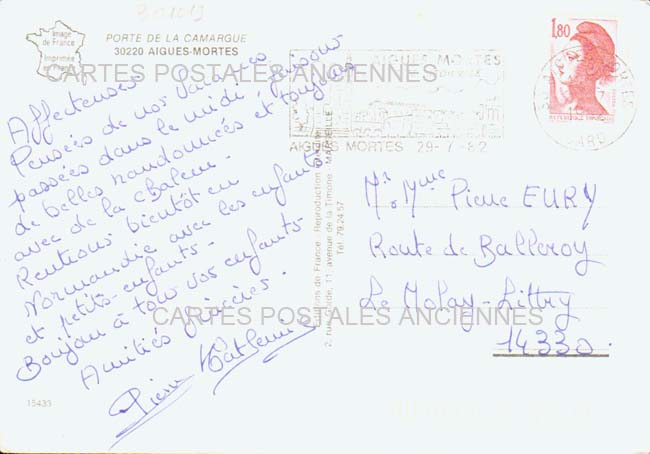 30101?
Image
de France
Imprimée
PORTE DE LA CAMARGUE
30220 AIGUES-MORTES
AIGUES MORTES
AIGUES MORTES 29-7-82
1,80
CARTES POSTALES ANCIENNES
Affectueuses
Pensées de nos vacances
passées dans le midi, faisons
de belles randonnées et toujours
avec de la chaleur.
Rentrons bientôt en
Normandie avec les enfants
et petits-enfants.
Bonjour à tous vos enfants
Amitiés sincères.
Pierre Kathleen
15433
de France. Reproduction
11, avenue de la Timone MARSEILLE
Tél. 79.24.57
Mr Mme Pierre EURY
Route de Balleroy
Le Molay-Littry
14330.
CARTES POSTALES ANCIENNES